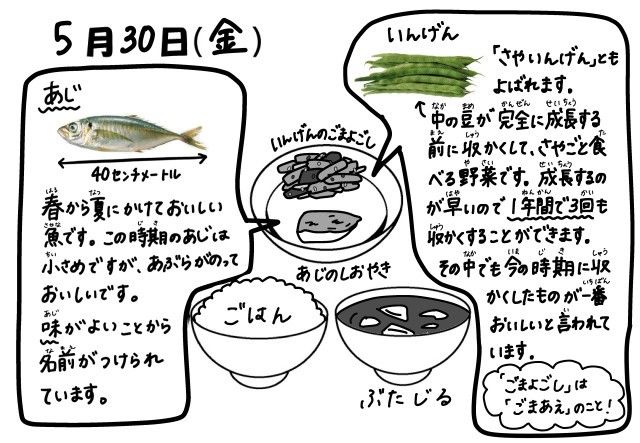 5月30日(金)
あじ
40センチメートル
春から夏にかけておいしい
魚です。この時期のあじは
小さめですが、あぶらがのって
おいしいです。
味がよいことから
名前がつけられ
ています。
いんげんのごまよごし
あじのしおやき
ごはん
ぶたじる
いんげん
「さやいんげん」とも
よばれます。
中の豆が完全に成長する
前に収かくして、さやごと食
べる野菜です。成長するの
が早いので1年間で3回も
収かくすることができます。
その中でも今の時期に収
かくしたものが一番
おいしいと言われて
います。
「ごまよごし」は
「ごまあえ」のこと!